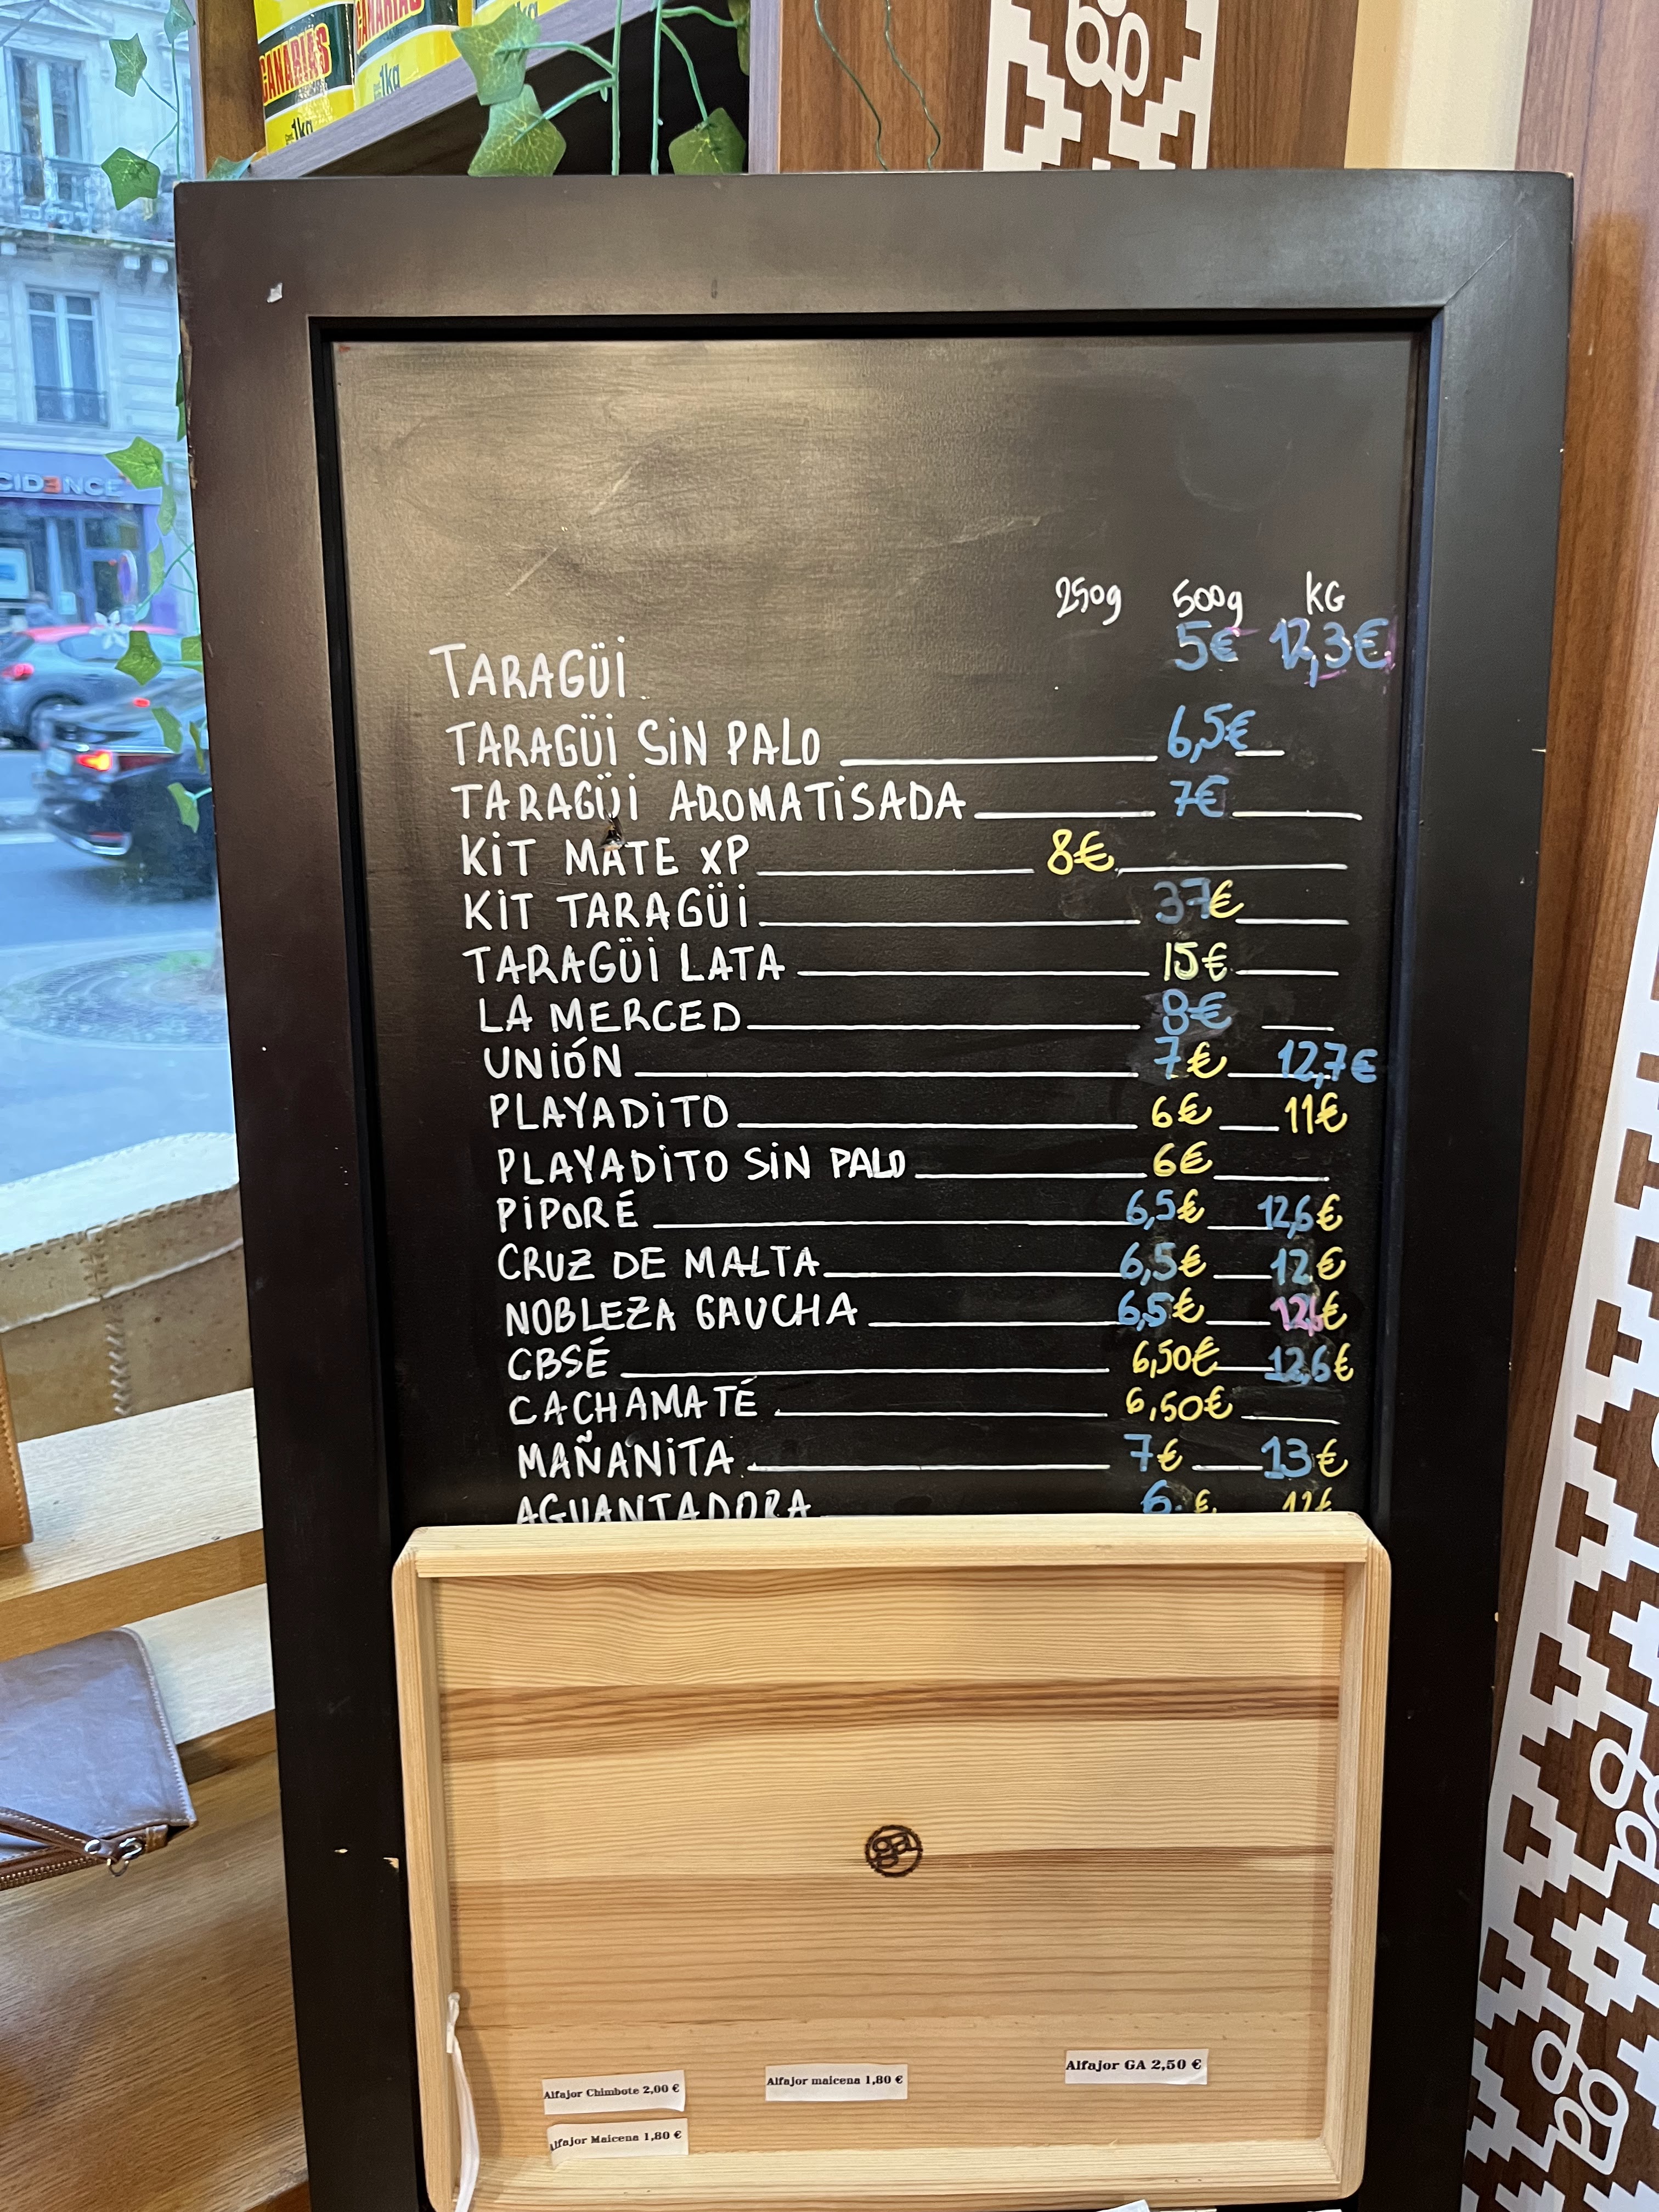 CANARIAS
CANARIAS
1kg
1kg
CIDENCE
250g 500g KG
TARAGÜI 5€ 12,3€
TARAGÜI SIN PALO 6,5€
TARAGÜI AROMATISADA 7€
KIT MATE XP 8€
KIT TARAGÜI 37€
TARAGÜI LATA 15€
LA MERCED 8€
UNIÓN 7€ 12,7€
PLAYADITO 6€ 11€
PLAYADITO SIN PALO 6€
PIPORÉ 6,5€ 12,6€
CRUZ DE MALTA 6,5€ 12€
NOBLEZA GAUCHA 6,5€
CBSÉ 6,50€ 12,6€
CACHAMATÉ 6,50€
MAÑANITA 7€ 13€
AGUANTADORA 12€
Alfajor GA 2,50 €
Alfajor maicena 1,80 €
Alfajor Chimbote 2,00 €
Alfajor Maicena 1,80 €